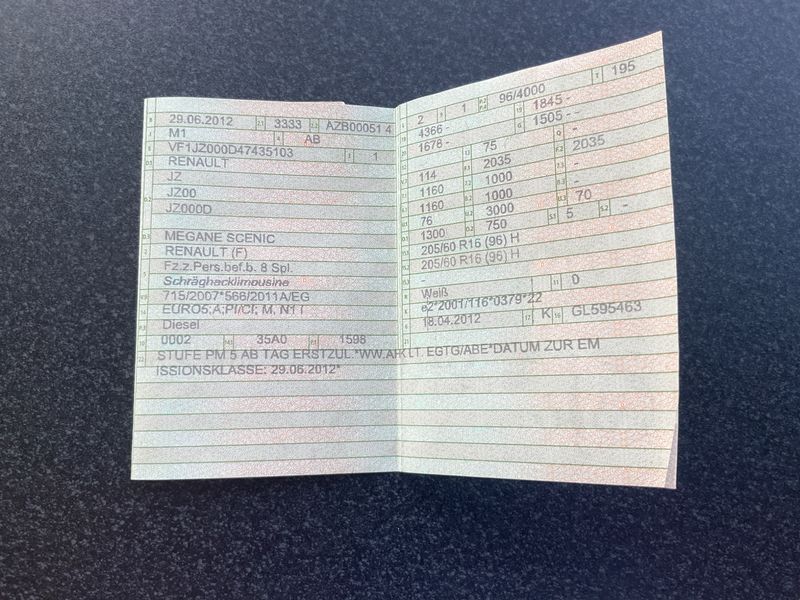 29.06.2012 3333 AZB00051 4
M1 AB
VF1JZ000D47435103 1
RENAULT
JZ
JZ00
JZ000D
MEGANE SCENIC
RENAULT (F)
Fz.z.Pers.bef.b. 8 Spl.
Schräghecklimousine
715/2007*566/2011A/EG
EURO5;A;PI/CI; M, N1 I
Diesel
0002 35A0 1598
STUFE PM 5 AB TAG ERSTZUL.*WW.AHK LT. EGTG/ABE*DATUM ZUR EM
ISSIONSKLASSE: 29.06.2012*
2 1 96/4000 195
4366 - 1845 -
1678 - 1505 -
75 -
114 2035 2035
1160 1000 -
1160 1000 -
76 3000 70
1300 750 5 -
205/60 R16 (96) H
205/60 R16 (96) H
Weiß 0
e2*2001/116*0379*22
18.04.2012 K GL595463